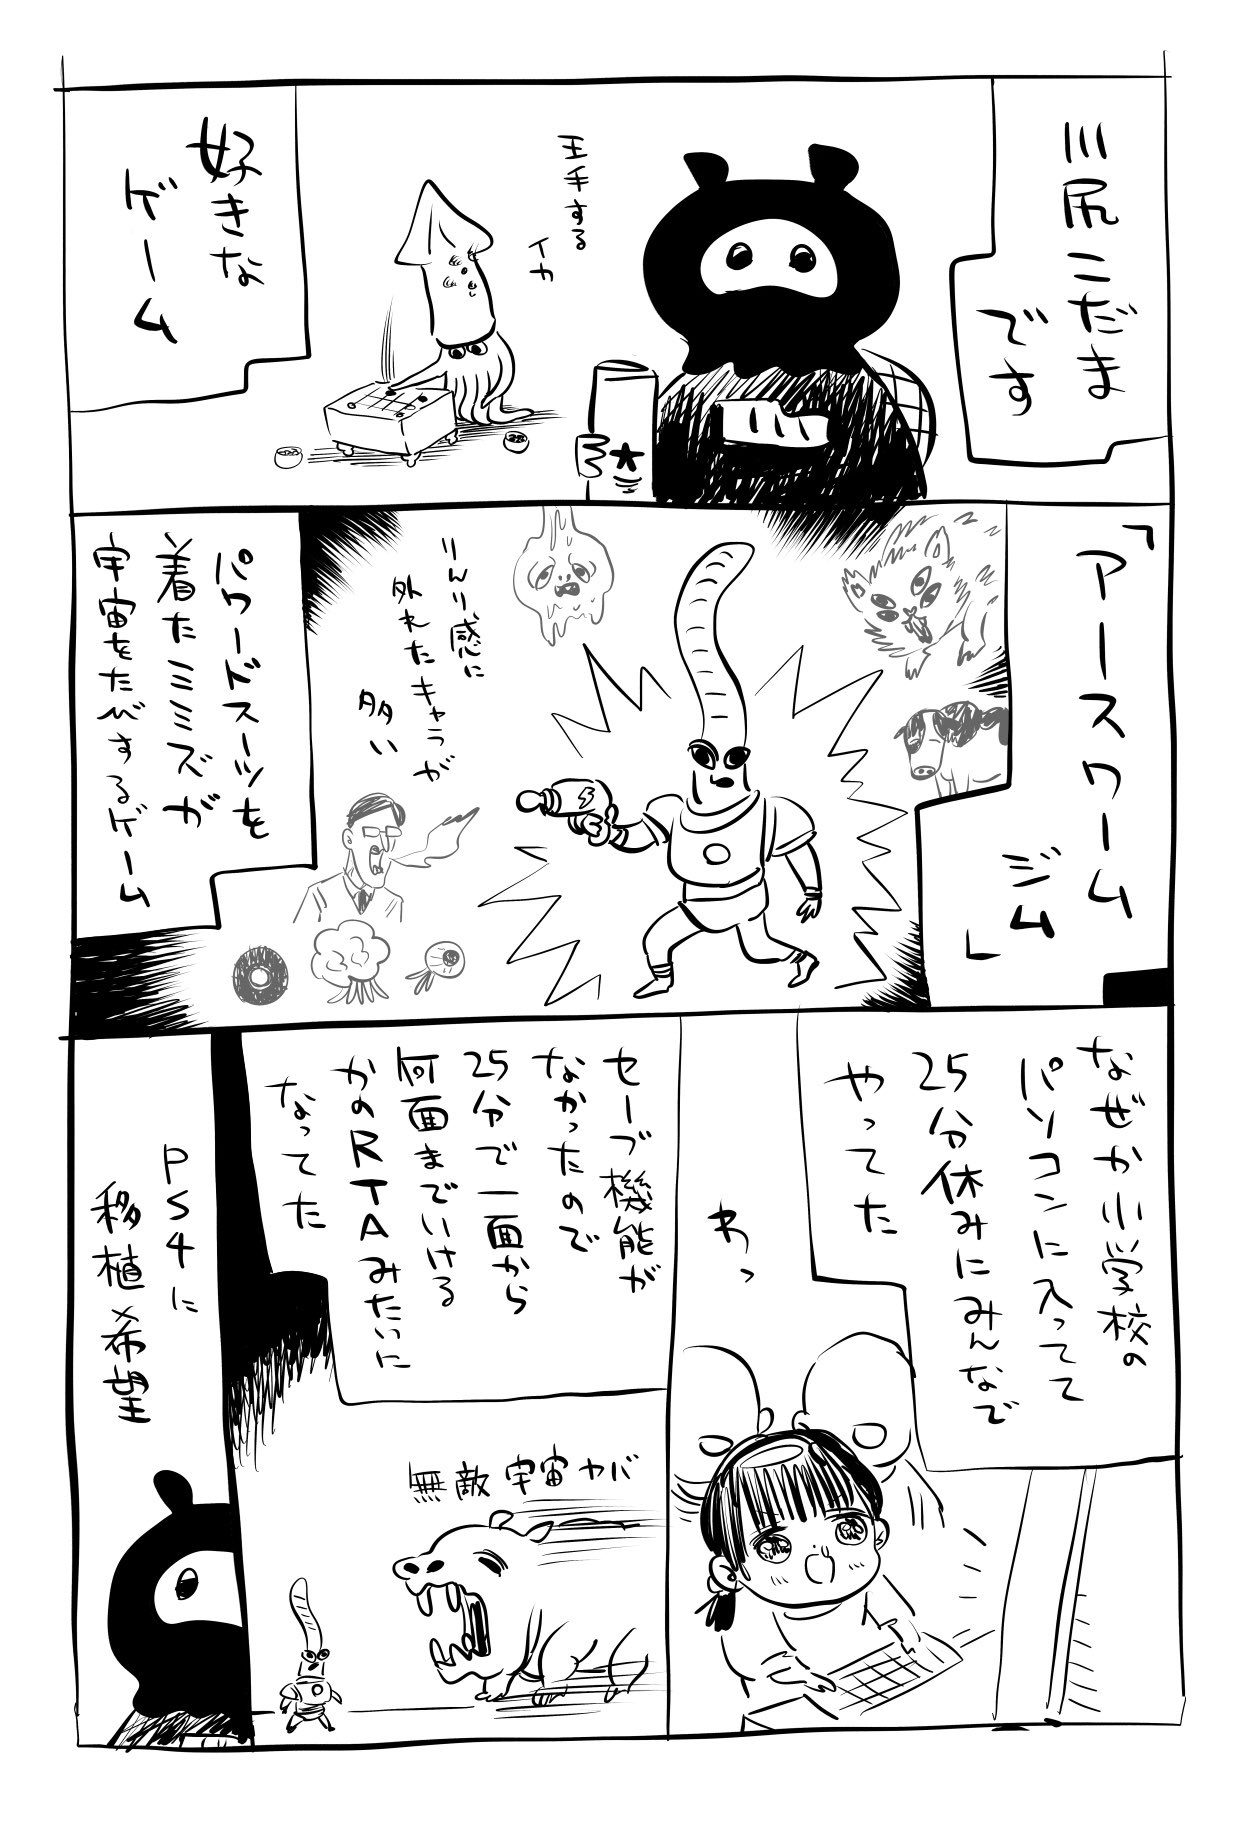 川尻こだま
です
王手する
イカ
好きな
ゲーム
「アースワーム
ジム」
りんり感に
外れたキャラが
多い
パワードスーツを
着たミミズが
宇宙をたびするゲーム
なぜか小学校の
パソコンに入ってて
25分休みにみんなで
やってた
わっ
セーブ機能が
なかったので
25分で一面から
何面までいける
かのRTAみたいに
なってた
無敵宇宙カバ
PS4に
移植希望